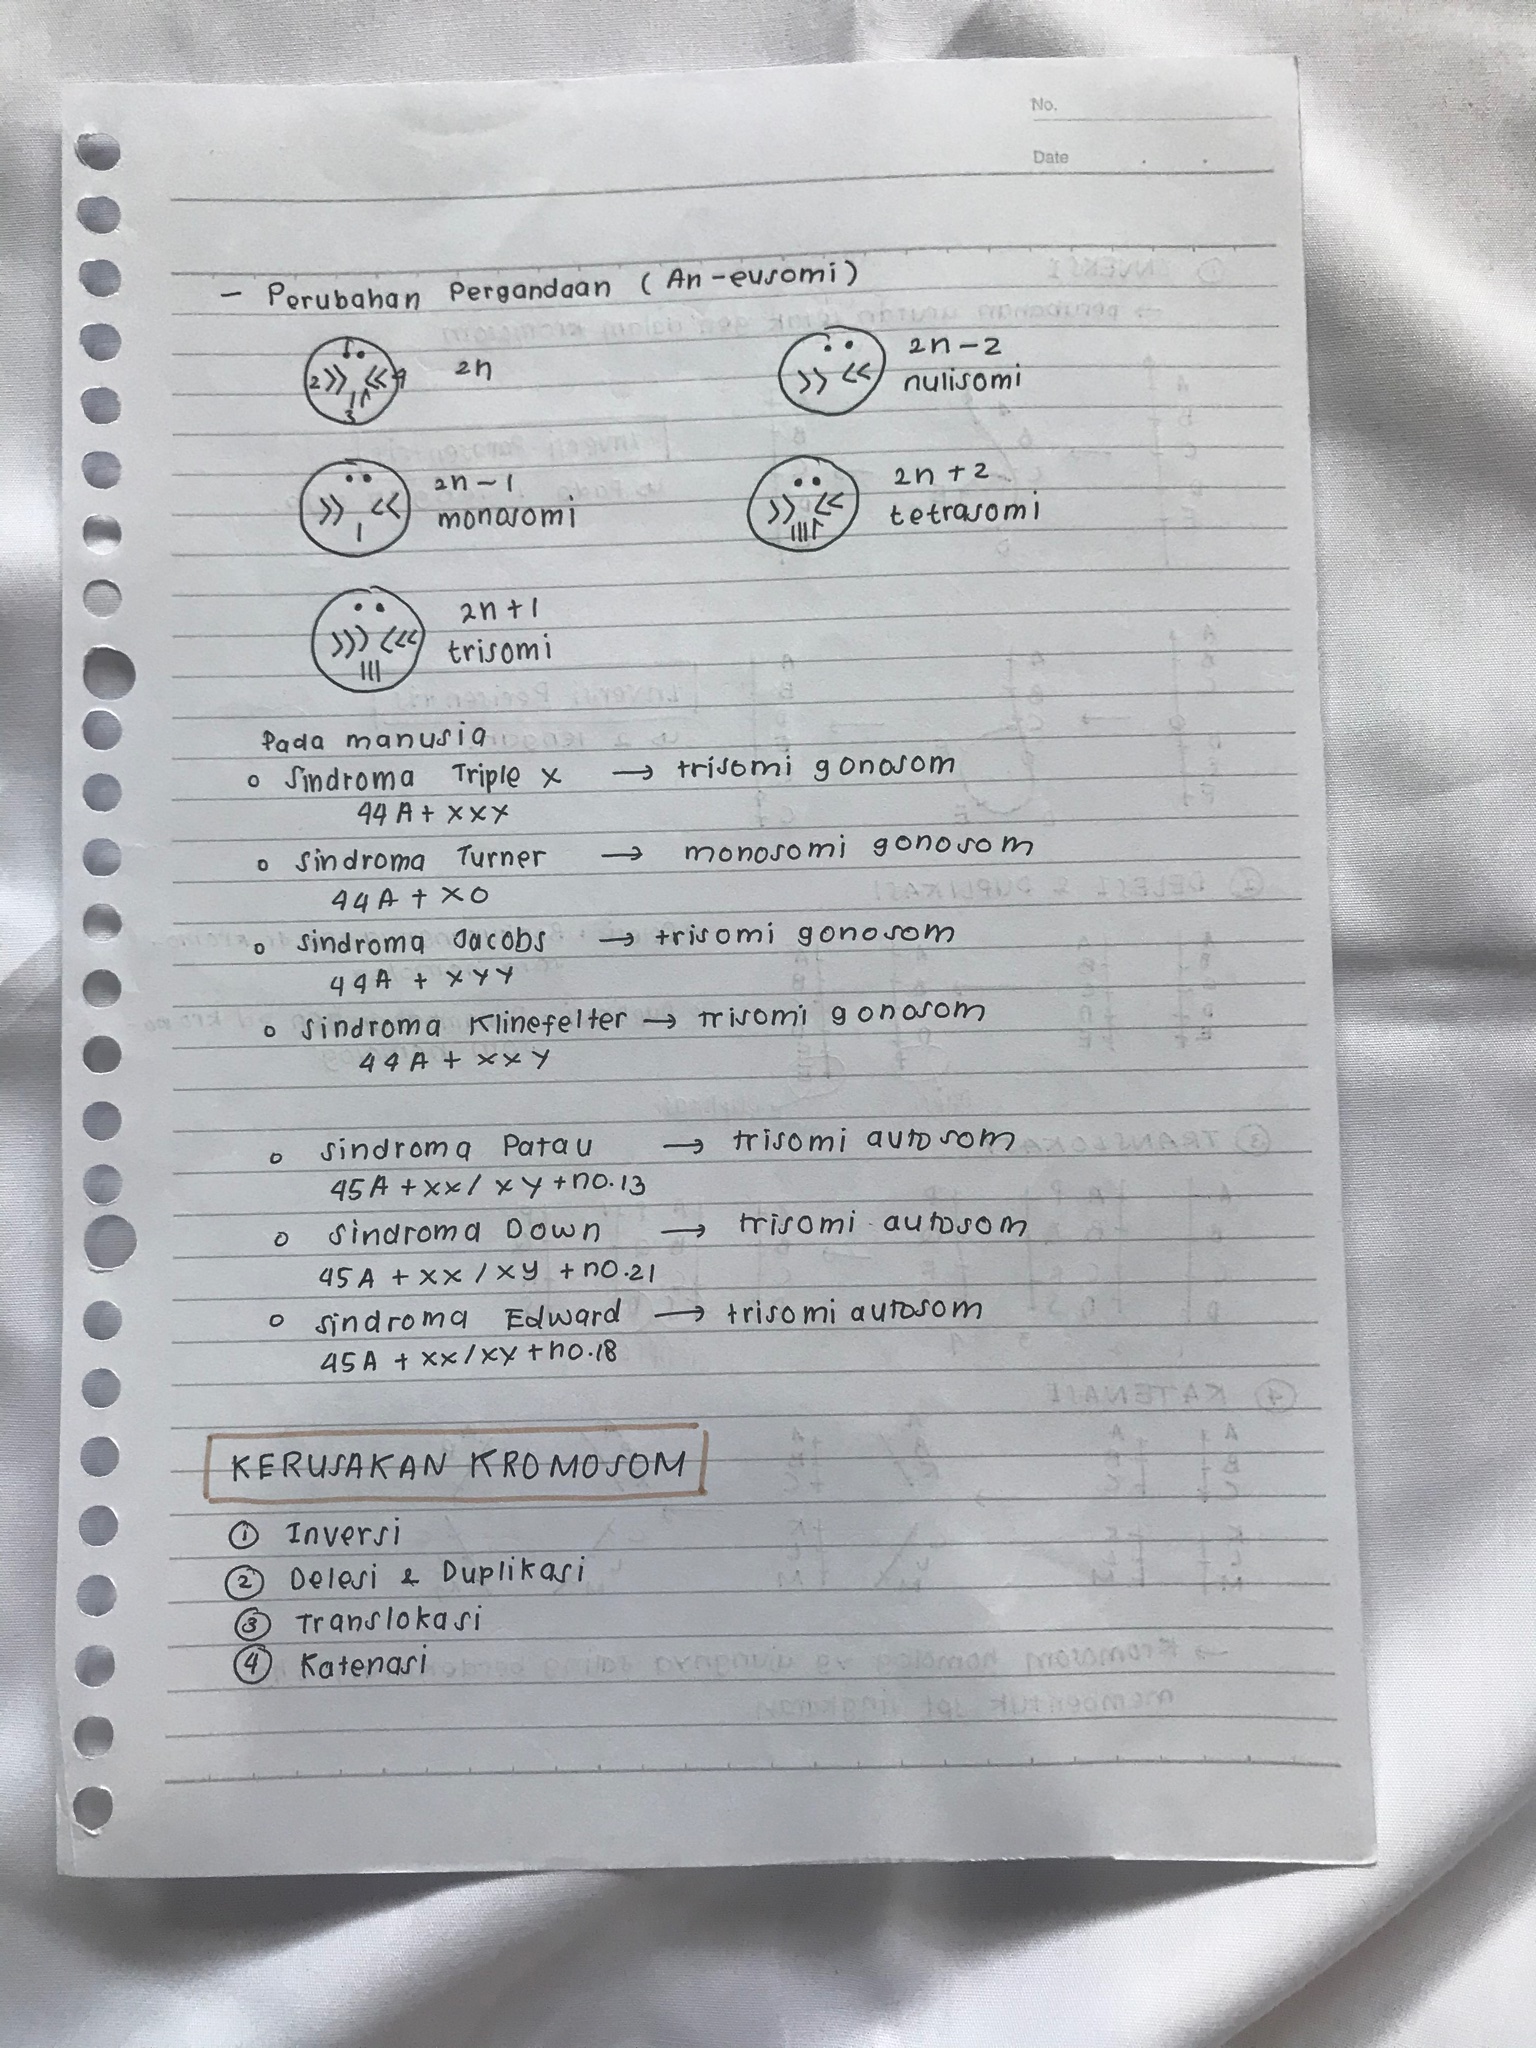 No.
Date
- Perubahan Pergandaan (An-eusomi)
1
2 4 2n
3
2n-2
nulisomi
2n-1
monosomi
2n+2
tetrasomi
2n+1
trisomi
Pada manusia
o Sindroma Triple X → trisomi gonosom
44A + XXX
o Sindroma Turner → monosomi gonosom
44A + XO
o Sindroma Jacobs → trisomi gonosom
44A + XYY
o Sindroma Klinefelter → trisomi gonosom
44A + XXY
o Sindroma Patau → trisomi autosom
45A + XX/XY + no.13
o Sindroma Down → trisomi autosom
45A + XX/XY + no.21
o Sindroma Edward → trisomi autosom
45A + XX/XY + no.18
KERUSAKAN KROMOSOM
① Inversi
② Delesi & Duplikasi
③ Translokasi
④ Katenasi